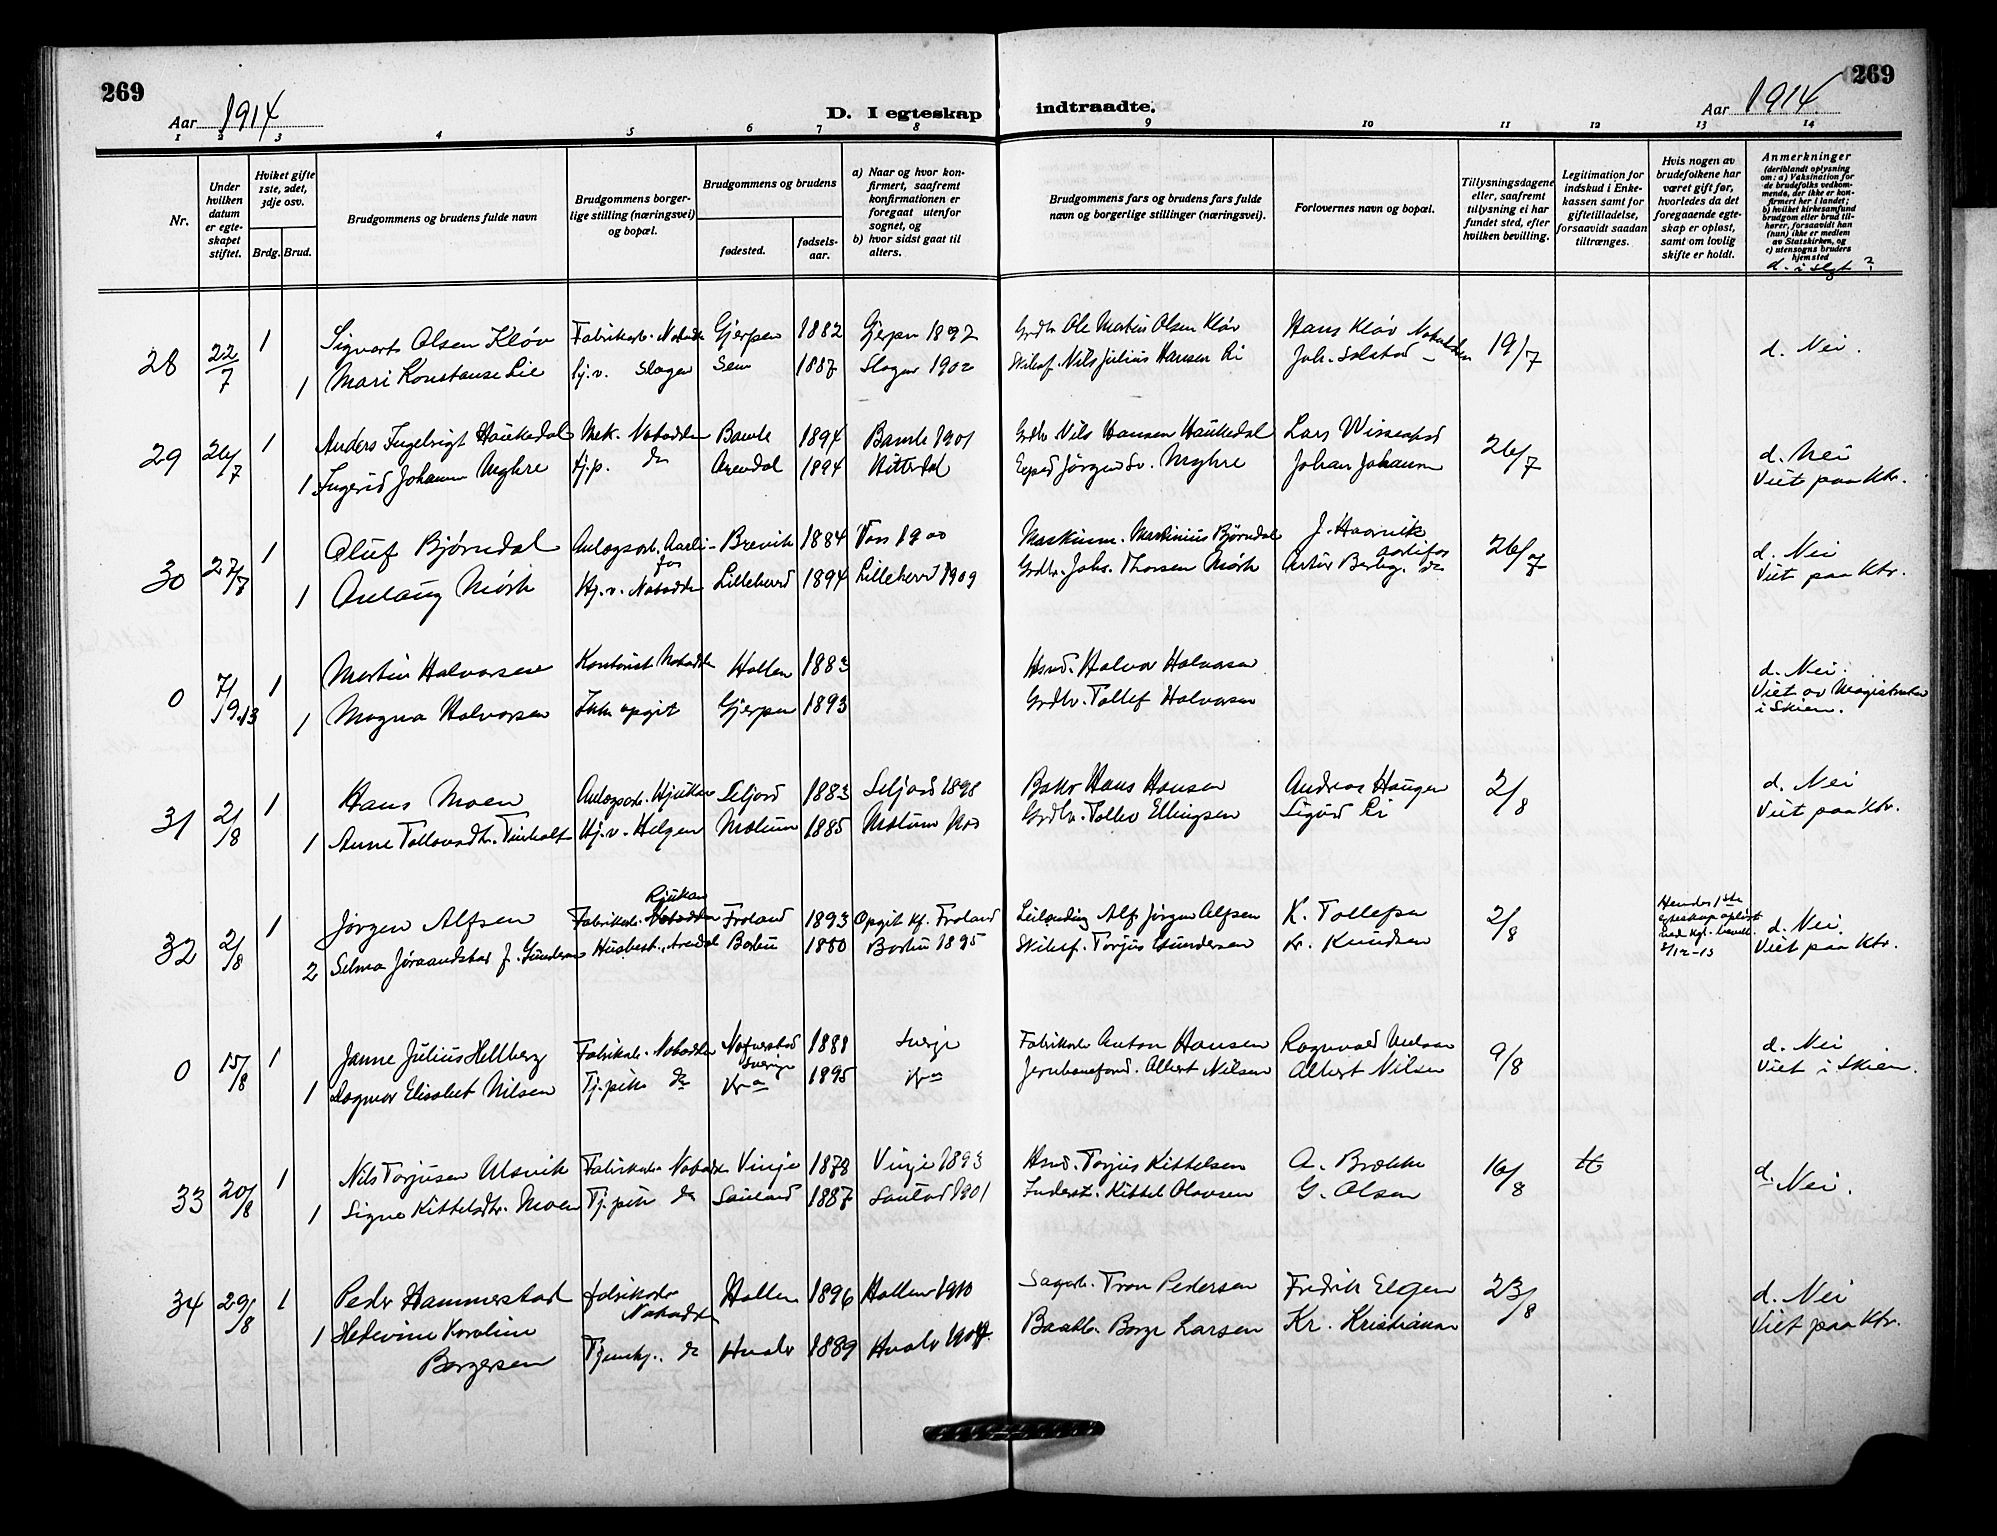 269
269
Aar 1914
D. I egteskap indtraadte.
Aar 1914
1 2 3 4 5 6 7 8 9 10 11 12 13 14
Nr.
Under hvilken datum er egteskapet stiftet.
Hviket gifte 1ste, 2det, 3dje osv.
Brdg. Brud.
Brudgommens og brudens fulde navn
Brudgommens borgerlige stilling (næringsvei) og bopæl.
Brudgommens og brudens
fødested.
fødselsaar.
a) Naar og hvor konfirmert, saafremt konfirmationen er foregaat utenfor sognet, og
b) hvor sidst gaat til alters.
Brudgommens fars og brudens fars fulde navn og borgerlige stillinger (næringsvei).
Forlovernes navn og bopæl.
Tillysningsdagene eller, saafremt tillysning ei har fundet sted, efter hvilken bevilling.
Legitimation for indskud i Enkekassen samt for giftetilladelse, forsaavidt saadan tiltrænges.
Hvis nogen av brudefolkene har været gift før, hvorledes da det foregaaende egteskap er opløst, samt om lovlig skifte er holdt.
Anmerkninger (deriblandt oplysning om: a) Vaksination for de brudefolks vedkommende, der ikke er konfirmert her i landet; b) hvilket kirkesamfund brudgom eller brud tilhører, forsaavidt han (hun) ikke er medlem av Statskirken, og c) utensogns bruders hjemsted
d. i slgt?
28 22/7 1 Sigvart Olsen Kløv Fabrikarb. Notodden Gjerpen 1882 Gjerpen 1897 Grdbr. Ole Matius Olsen Kløv Hans Kløv Notodden 19/7 d. Nei.
1 Mari Konstanse Lie Hj.v. Slagen Sem 1887 Slagen 1902 Skibsf. Nils Julius Hansen Li Joh. Solstad -
29 26/7 1 Anders Ingebrigt Haukedal Mek. Notodden Bamle 1894 Bamle 1901 Grdbr. Nils Hansen Haukedal Lars Wissestad 26/7 d. Nei
1 Ingerid Johanne Myhre tj.p. do Arendal 1894 Hitterdal Exped Jørgen Sv. Myhre Johan Johansen Viet paa Ktr.
30 27/7 1 Oluf Bjørndal Anlægsarb. Aarlifos Brevik 1884 Voss 1900 Maskinm. Martinius Bjørndal J. Haavik Aarlifos 26/7 d. Nei
1 Anlaug Mørk Hj.v. Notodden Lilleherred 1894 Lilleherred 1909 Grdbr. Johs. Thorsen Mørk Artur Berby. do Viet paa Ktr.
0 7/9.13 1 Martin Halvorsen Kontorist Notodden Hollen 1883 Hsmd. Halvor Halvorsen d. Nei.
1 Magna Halvorsen Ikke opgit Gjerpen 1893 Grdbr. Tollef Halvorsen Viet av Magistraten i Skien.
31 2/8 1 Hans Moen Anlægsarb. Hjukse Seljord 1883 Seljord 1898 Baker Hans Hansen Andreas Haugen 2/8 d. Nei
1 Anne Tollevsdtr. Tveiholt Hj.v. Helgen Mælum 1885 Mælum Grdbr. Tollev Ellingsen Sigurd Li Viet paa Ktr.
32 2/8 1 Jørgen Alfsen Fabrikarb. Rjukan Froland 1893 Opgit kf. Froland Leilending Alf Jørgen Alfsen K. Tollefsen 2/8 Hendes 1ste egteskap opløst ved kgl. bevill. 5/12-13 d. Nei.
2 Selma Jøraandstad f. Gundersen Husbest., Arendal Borbu 1880 Borbu 1895 Skibsf. Torjus Gundersen Kr. Knudsen Viet paa Ktr.
0 15/8 1 Janne Julius Hellberg Fabrikarb. Notodden Sverige 1888 Sverige Fabrikarb. Anton Hansen Ragnvald 9/8 d. Nei
1 Dagmar Elisabet Nilsen Tj.pike do Kr.a 1895 Kr.a Jernbaneform. Albert Nilsen Albert Nilsen Viet i Skien.
33 20/8 1 Nils Torjusen Ulsvik Fabrikarb. Notodden Vinje 1878 Vinje 1893 Hsmd. Torjus Kittelsen A. Brække 16/8 d. Nei.
1 Signe Kittelsdtr. Moen Tj.pike do Sauland 1887 Sauland 1901 Inderst. Kittel Olavsen G. Olsen
34 29/8 1 Peder Hammerstad fabrikarb. Notodden Hollen 1896 Hollen 1910 Sagarb. Tron Pedersen Fredrik Elgen 23/8 d. Nei
1 Hedevine Karoline Borgersen Tjenestp. do Hvaler 1889 Hvaler 1904. Baatb. Borge Larsen Kr. Kristiansen Viet paa Ktr.